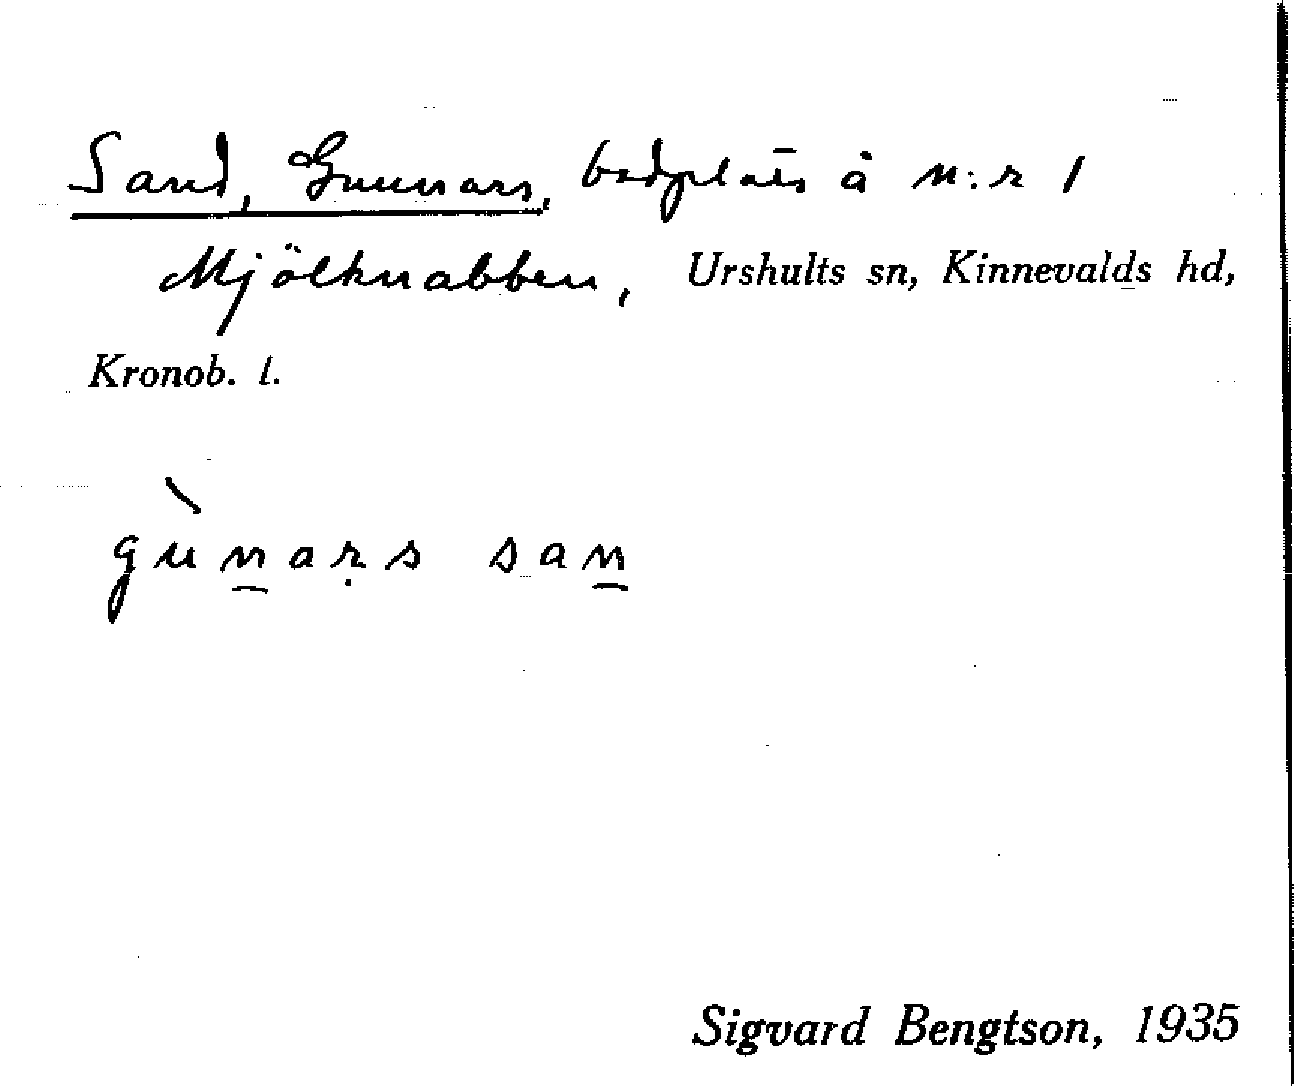 Sand, Gunnars, badplats å n:r 1
Mjölknabben, Urshults sn, Kinnevalds hd,
Kronob. l.
gùn̲aṛs san̲
Sigvard Bengtson, 1935